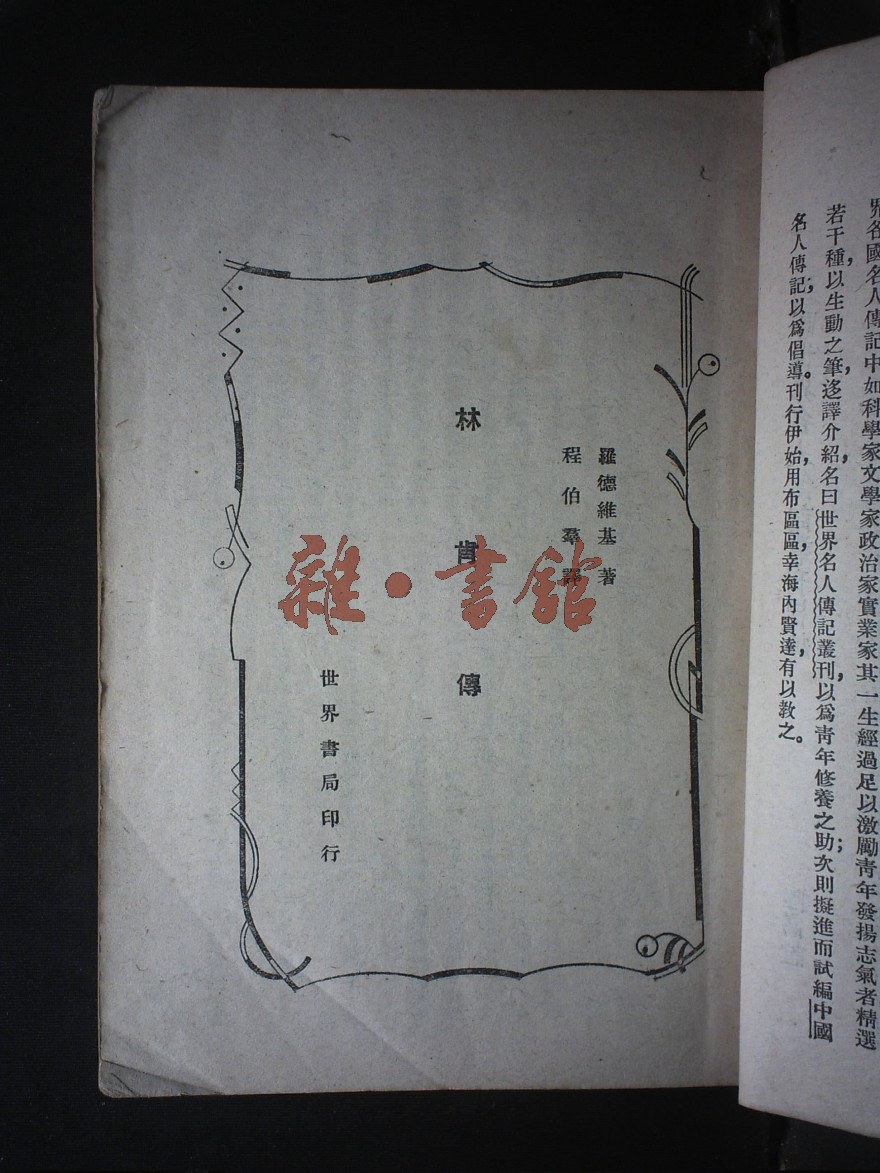 界各國名人傳記中如科學家文學家政治家實業家其一生經過足以激勵青年發揚志氣者精選
若干種，以生動之筆，迻譯介紹，名曰世界名人傳記叢刊，以爲青年修養之助；次則擬進而試編中國
名人傳記；以爲倡導。刊行伊始，用布區區，幸海內賢達，有以教之。
羅德維基著
程伯羣譯
林肯傳
世界書局印行
雜·書館